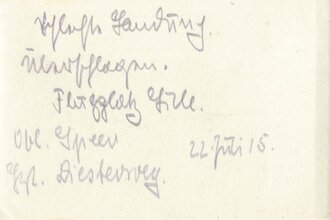 Schlechte Landung.
überschlagen.
Flugplatz Lille.
Obl. Speer 22 Juli 15.
Hptl. Diesterweg.